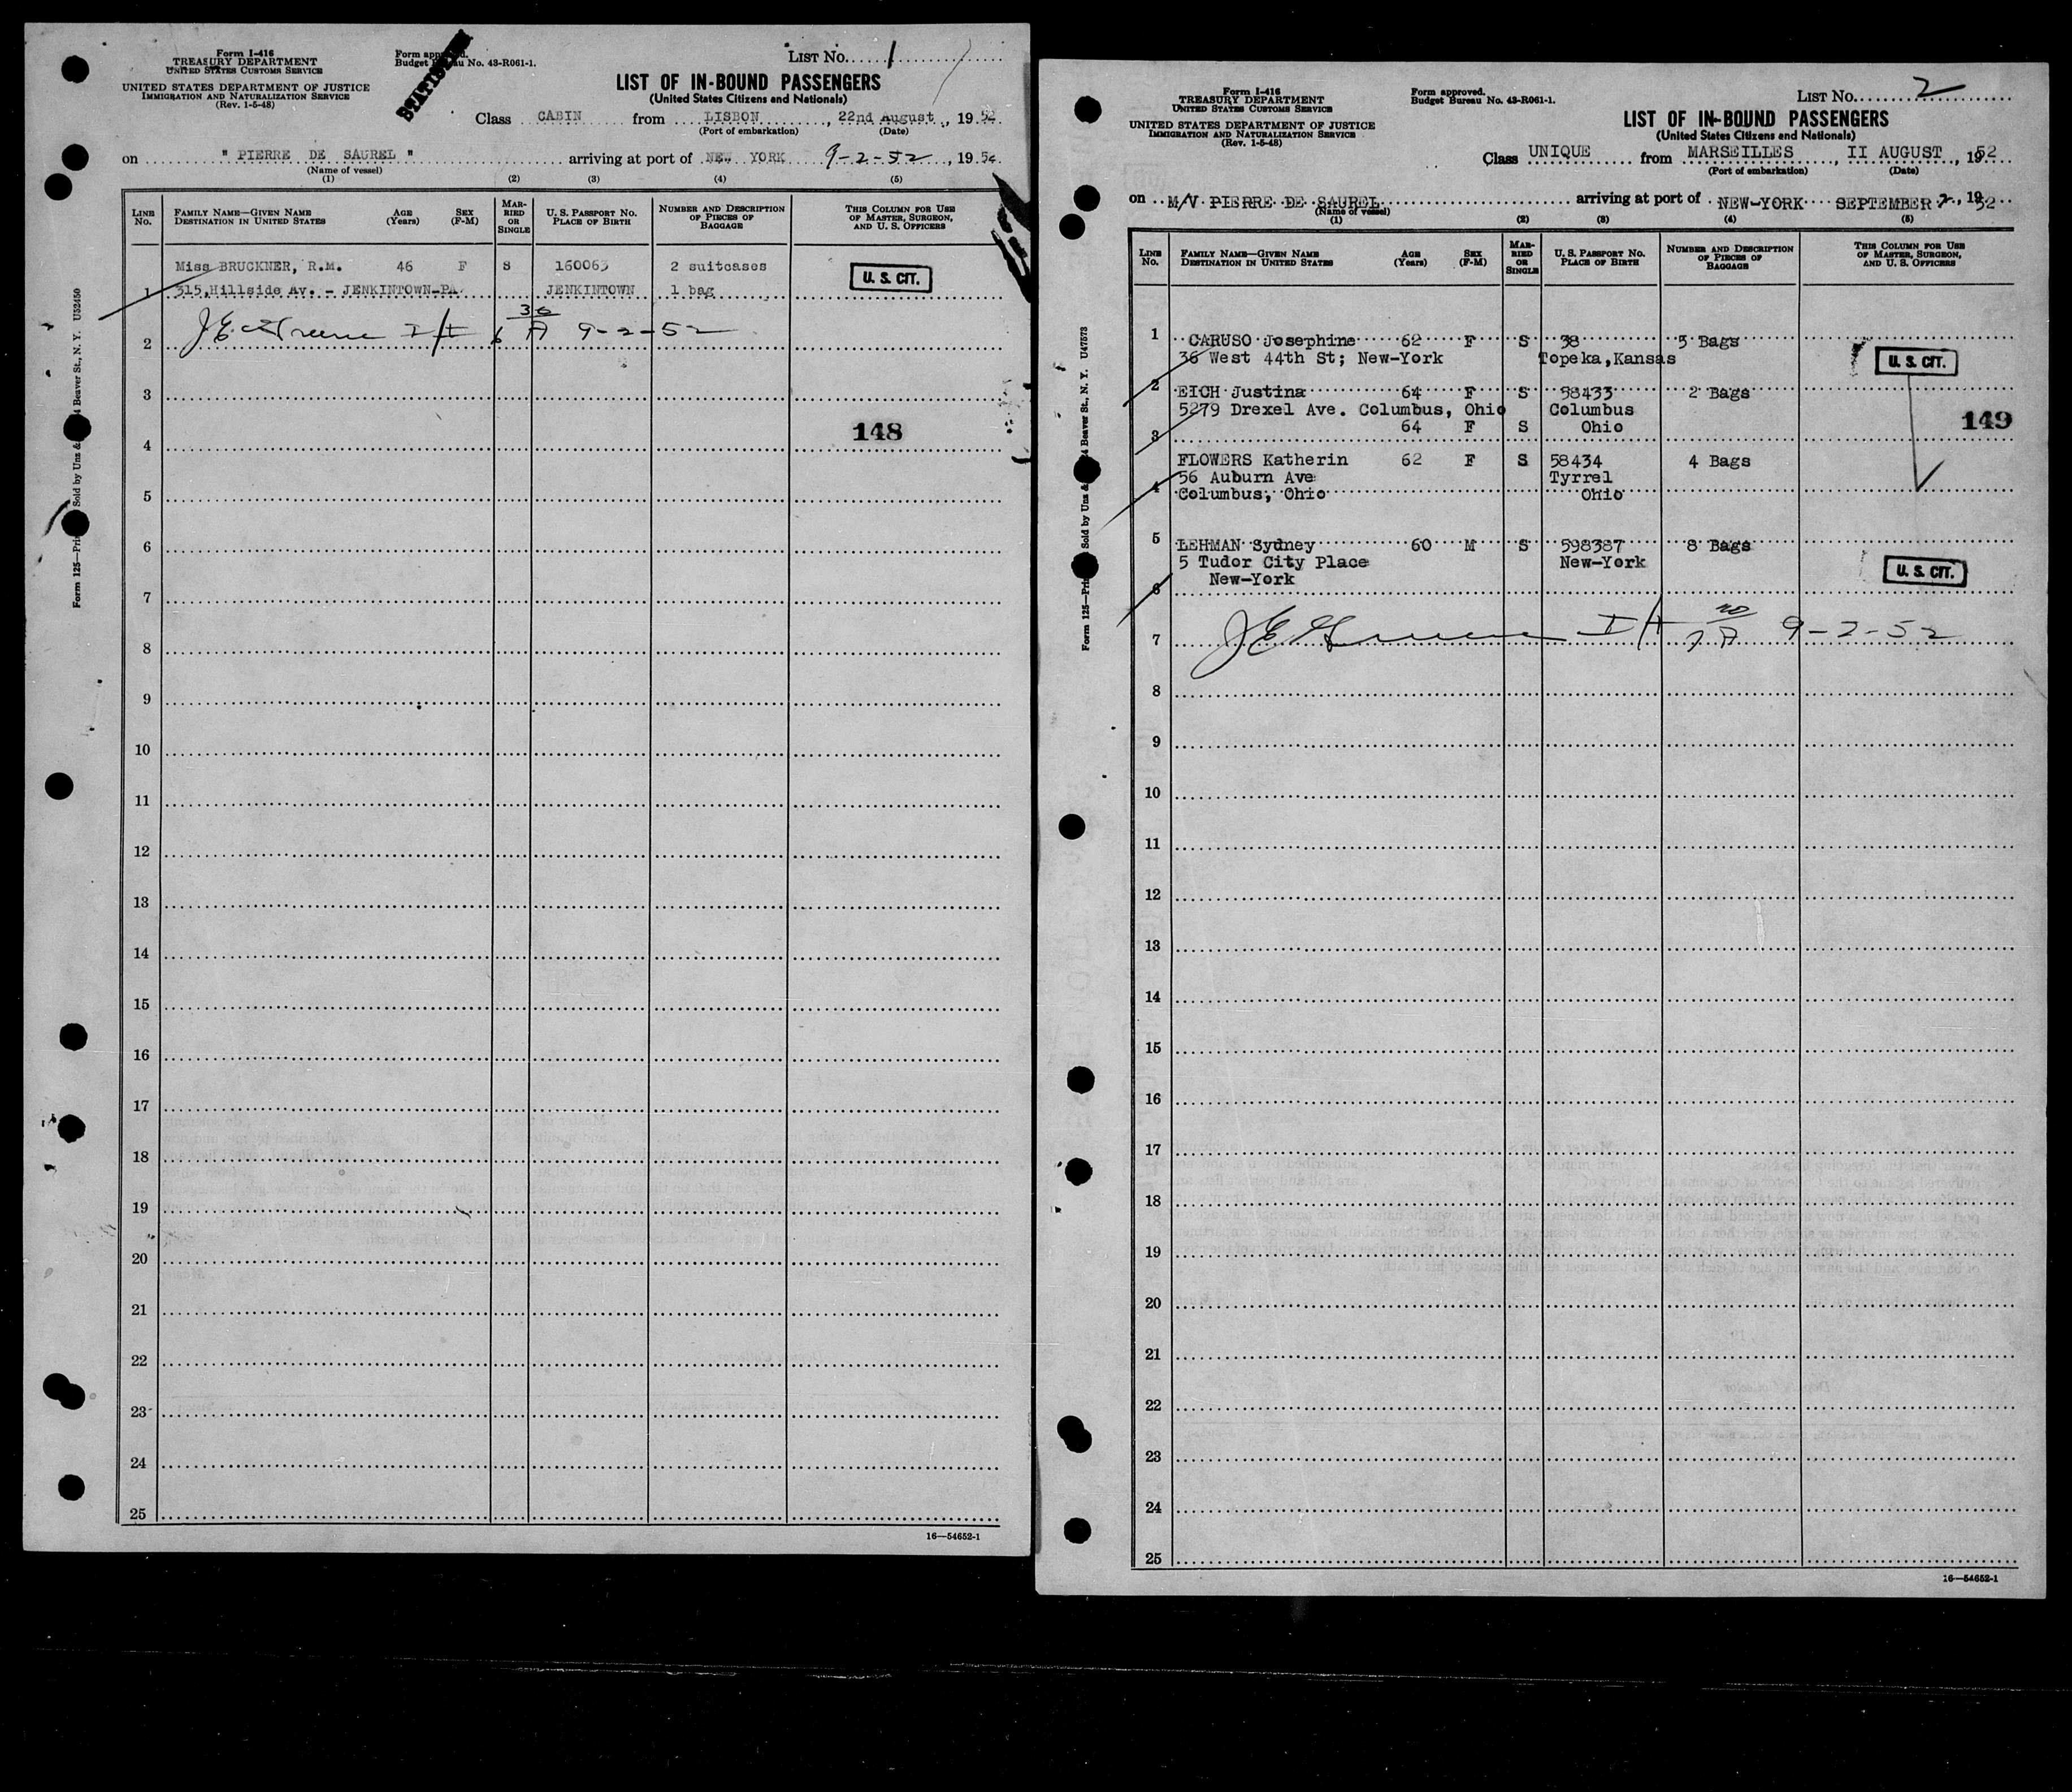 Form I-416
TREASURY DEPARTMENT
UNITED STATES CUSTOMS SERVICE
UNITED STATES DEPARTMENT OF JUSTICE
IMMIGRATION AND NATURALIZATION SERVICE
(Rev. 1-5-48)
Form approved.
Budget Bureau No. 43-R061-1.
LIST No. 1
LIST OF IN-BOUND PASSENGERS
(United States Citizens and Nationals)
Class CABIN from LISBON, 22nd August, 1952
(Port of embarkation) (Date)
on " PIERRE DE SAUREL " arriving at port of NEW YORK 9-2-52, 1952
(Name of vessel)
(1) (2) (3) (4) (5)
LINE No. FAMILY NAME—GIVEN NAME DESTINATION IN UNITED STATES AGE (Years) SEX (F-M) MARRIED OR SINGLE U. S. PASSPORT No. PLACE OF BIRTH NUMBER AND DESCRIPTION OF PIECES OF BAGGAGE THIS COLUMN FOR USE OF MASTER, SURGEON, AND U. S. OFFICERS
Miss BRUCKNER, R.M. 46 F S 160063 2 suitcases
1 515,Hillside Av. - JENKINTOWN-PA. JENKINTOWN 1 bag
U. S. CIT.
2 9-2-52
3
4 148
5
6
7
8
9
10
11
12
13
14
15
16
17
18
19
20
21
22
23
24
25
16—54652-1
Form 125—Sold by Unz & Beaver St., N. Y. U32450
Form I-416
TREASURY DEPARTMENT
UNITED STATES CUSTOMS SERVICE
UNITED STATES DEPARTMENT OF JUSTICE
IMMIGRATION AND NATURALIZATION SERVICE
(Rev. 1-5-48)
Form approved.
Budget Bureau No. 43-R061-1.
LIST No. 2
LIST OF IN-BOUND PASSENGERS
(United States Citizens and Nationals)
Class UNIQUE from MARSEILLES, II AUGUST, 1952
(Port of embarkation) (Date)
on M/V PIERRE DE SAUREL arriving at port of NEW-YORK SEPTEMBER 2, 1952
(Name of vessel)
(1) (2) (3) (4) (5)
LINE No. FAMILY NAME—GIVEN NAME DESTINATION IN UNITED STATES AGE (Years) SEX (F-M) MARRIED OR SINGLE U. S. PASSPORT No. PLACE OF BIRTH NUMBER AND DESCRIPTION OF PIECES OF BAGGAGE THIS COLUMN FOR USE OF MASTER, SURGEON, AND U. S. OFFICERS
1 CARUSO Josephine 62 F S 38 5 Bags
36 West 44th St; New-York Topeka,Kansas
U. S. CIT.
2 EICH Justina 64 F S 58433 2 Bags
5279 Drexel Ave. Columbus, Ohio Columbus
149
3 64 F S Ohio
FLOWERS Katherin 62 F S 58434 4 Bags
56 Auburn Ave Tyrrel
4 Columbus, Ohio Ohio
5 LEHMAN Sydney 60 M S 598387 8 Bags
5 Tudor City Place New-York
U. S. CIT.
New-York
6
7 9-2-52
8
9
10
11
12
13
14
15
16
17
18
19
20
21
22
23
24
25
16—54652-1
Form 125—Sold by Unz & Beaver St., N. Y. U47573